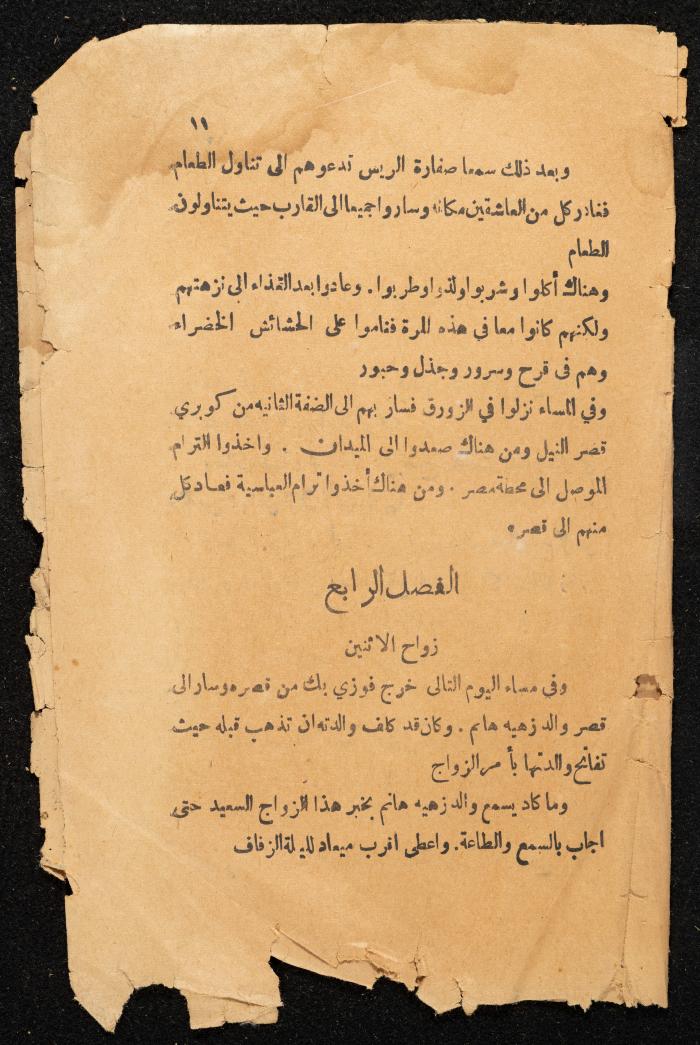 ١١
وبعد ذلك سمعا صفارة الريس تدعوهم الى تناول الطعام
فغادر كل من العاشقين مكانه وساروا جميعا الى القارب حيث يتناولون
الطعام
وهناك أكلوا وشربوا ولذوا وطربوا . وعادوا بعد الغذاء الى نزهتهم
ولكنهم كانوا معا في هذه المرة فقاموا على الحشائش الخضراء
وهم فى فرح وسرور وجذل وحبور
وفي المساء نزلوا في الزورق فسار بهم الى الضفة الثانيه من كوبري
قصر النيل ومن هناك صعدوا الى الميدان . واخذوا الترام
الموصل الى محطة مصر . ومن هناك أخذوا ترام العباسية فعاد كل
منهم الى قصره
الفصل الرابع
زواح الاثنين
وفى مساء اليوم التالى خرج فوزي بك من قصره وسار الى
قصر والد زهيه هانم . وكان قد كلف والدته ان تذهب قبله حيث
تفاتح والدتها بأمر الزواج
وما كاد يسمع والد زهيه هانم بخبر هذا الزواج السعيد حتى
اجاب بالسمع والطاعة . واعطى اقرب ميعاد لليلة الزفاف